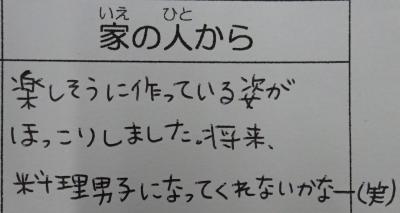 いえ ひと
家の人から
楽しそうに作っている姿が
ほっこりしました。将来、
料理男子になってくれないかなー(笑)